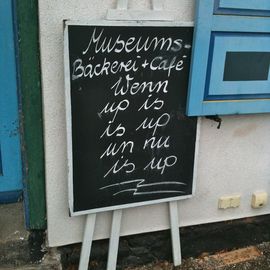 Museums-
Bäckerei + Café
Wenn
up is
is up
un nu
is up